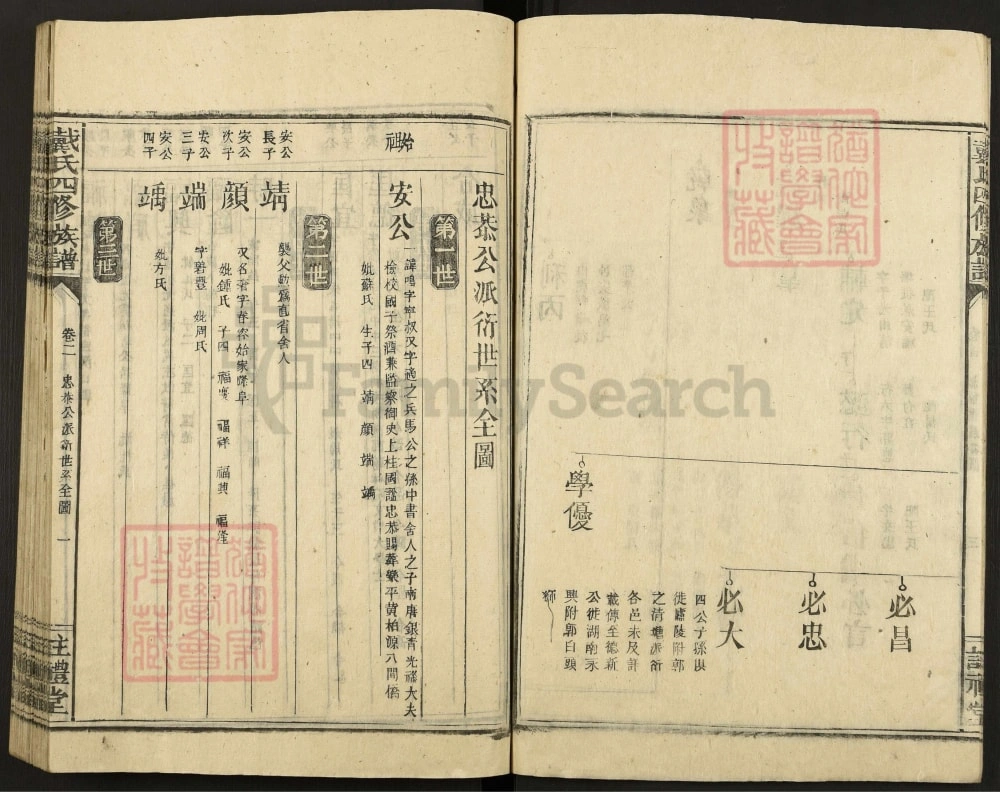 戴氏四修族譜
必昌
必忠
必大
四公子孫
徙廬陵附郭
之清塘派衍
各邑未及詳
載傳至德新
公徙湖南永
興附郭白頭
獅
學優
忠恭公派衍世系全圖
第一世
始祖
安公
諱鳴字寧叔又字適之兵馬公之孫中書舍人之子南唐銀青光祿大夫
檢校國子祭酒兼監察御史上柱國謚忠恭賜葬樂平黃柏源八間僑
妣蘇氏 生子四 靖 顏 端 竬
第二世
安公長子
靖
襲父勛爲直省舍人
安公次子
顏
又名著字春容始家隆阜
妣鍾氏 子四 福慶 福祥 福興 福隆
安公三子
端
字碧豐 妣周氏
安公四子
竬
妣方氏
第三世
戴氏四修族譜
卷二 忠恭公派衍世系全圖 一
註禮堂
FamilySearch